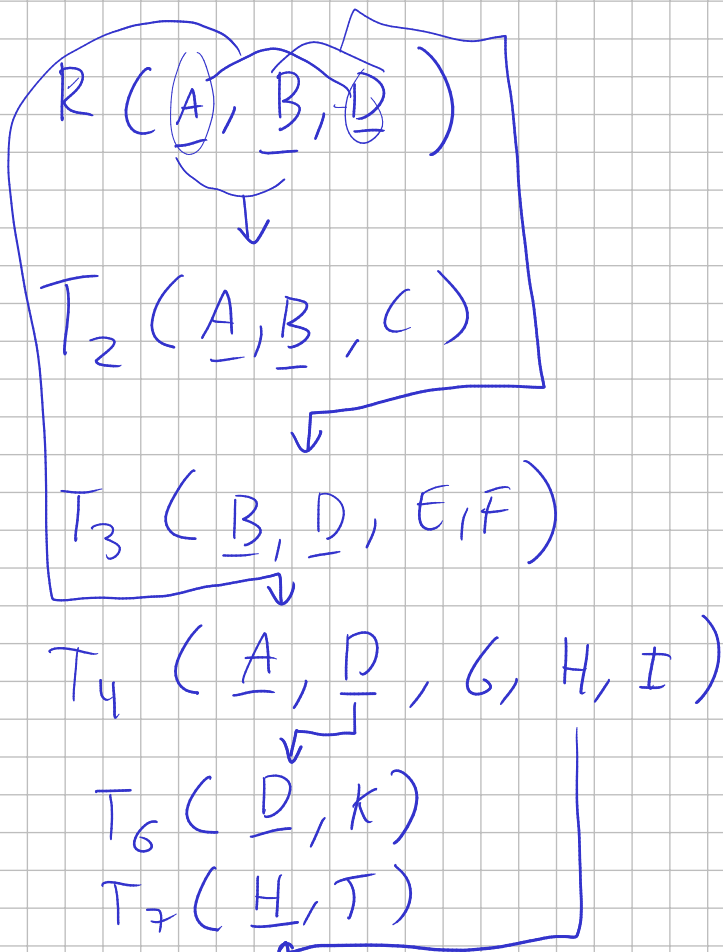 R ( A, B, D )
T2 ( A, B, C )
T3 ( B, D, E, F )
T4 ( A, D, G, H, I )
T6 ( D, K )
T7 ( H, J )